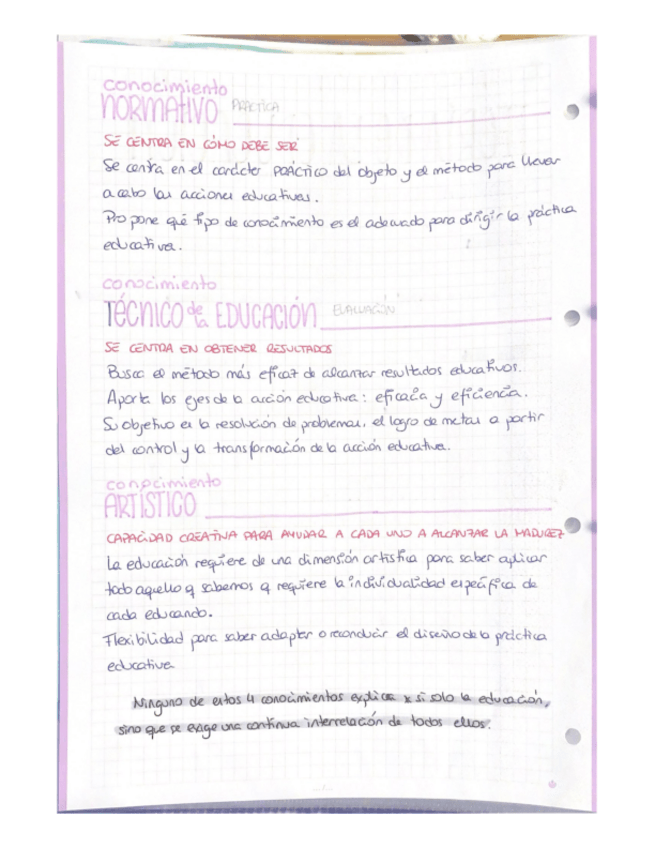 conocimiento
NORMATIVO PRÁCTICA
SE CENTRA EN CÓMO DEBE SER
Se centra en el carácter PRÁCTICO del objeto y el método para llevar
a cabo las acciones educativas.
Propone qué tipo de conocimiento es el adecuado para dirigir la práctica
educativa.
conocimiento
TÉCNICO de la EDUCACIÓN EVALUACIÓN
SE CENTRA EN OBTENER RESULTADOS
Busca el método más eficaz de alcanzar resultados educativos.
Aporta los ejes de la acción educativa: eficacia y eficiencia.
Su objetivo es la resolución de problemas, el logro de metas a partir
del control y la transformación de la acción educativa.
conocimiento
ARTÍSTICO
CAPACIDAD CREATIVA PARA AYUDAR A CADA UNO A ALCANZAR LA MADUREZ
La educación requiere de una dimensión artística para saber aplicar
todo aquello q sabemos q requiere la individualidad específica de
cada educando.
Flexibilidad para saber adaptar o reconducir el diseño de la práctica
educativa
Ninguno de estos 4 conocimientos explica x si solo la educación,
sino que se exige una continua interrelación de todos ellos.